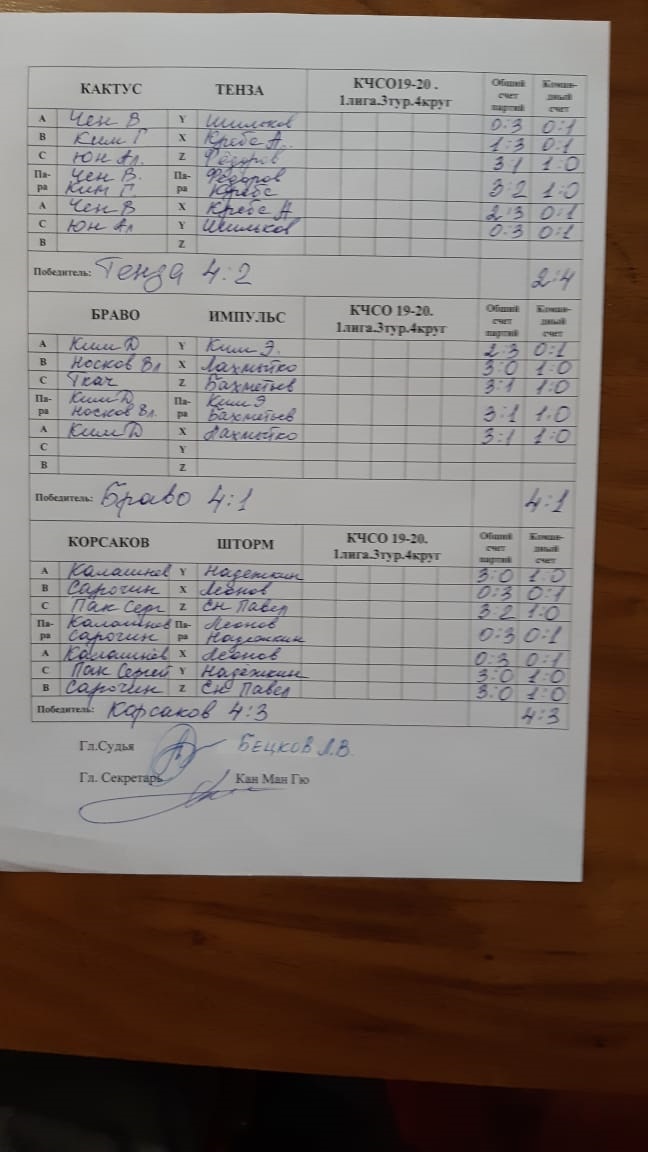 КАКТУС ТЕНЗА КЧСО19-20 . 1лига.3тур.4круг Общий счет партий Коман-дный счет
A Чен В Y Шильков 0:3 0:1
B Ким Г X Кребс А. 1:3 0:1
C Юн Ал. Z Фёдоров 3:1 1:0
Па-ра Чен В. Ким Г. Па-ра Фёдоров Кребс 3:2 1:0
A Чен В X Кребс А 2:3 0:1
C Юн Ал Y Шильков 0:3 0:1
B Z
Победитель: Тенза 4:2 2:4
БРАВО ИМПУЛЬС КЧСО 19-20. 1лига.3тур.4круг Общий счет партий Коман-дный счет
A Ким Д Y Ким Э. 2:3 0:1
B Носков Вл X Лахмытко 3:0 1:0
C Ткач Z Бахметьев 3:1 1:0
Па-ра Ким Д Носков Вл. Па-ра Ким Э Бахметьев 3:1 1:0
A Ким Д X Лахмытко 3:1 1:0
C Y
B Z
Победитель: Браво 4:1 4:1
КОРСАКОВ ШТОРМ КЧСО 19-20. 1лига.3тур.4круг Общий счет партий Коман-дный счет
A Калашнев Y Надежкин 3:0 1:0
B Сарочин X Леонов 0:3 0:1
C Пак Серг Z Ен Павел 3:2 1:0
Па-ра Калашнев Сарочин Па-ра Леонов Надежкин 0:3 0:1
A Калашнев X Леонов 0:3 0:1
C Пак Сергей Y Надежкин 3:0 1:0
B Сарочин Z Ен Павел 3:0 1:0
Победитель: Корсаков 4:3 4:3
Гл.Судья БЕЦКОВ Л.В.
Гл. Секретарь Кан Ман Гю